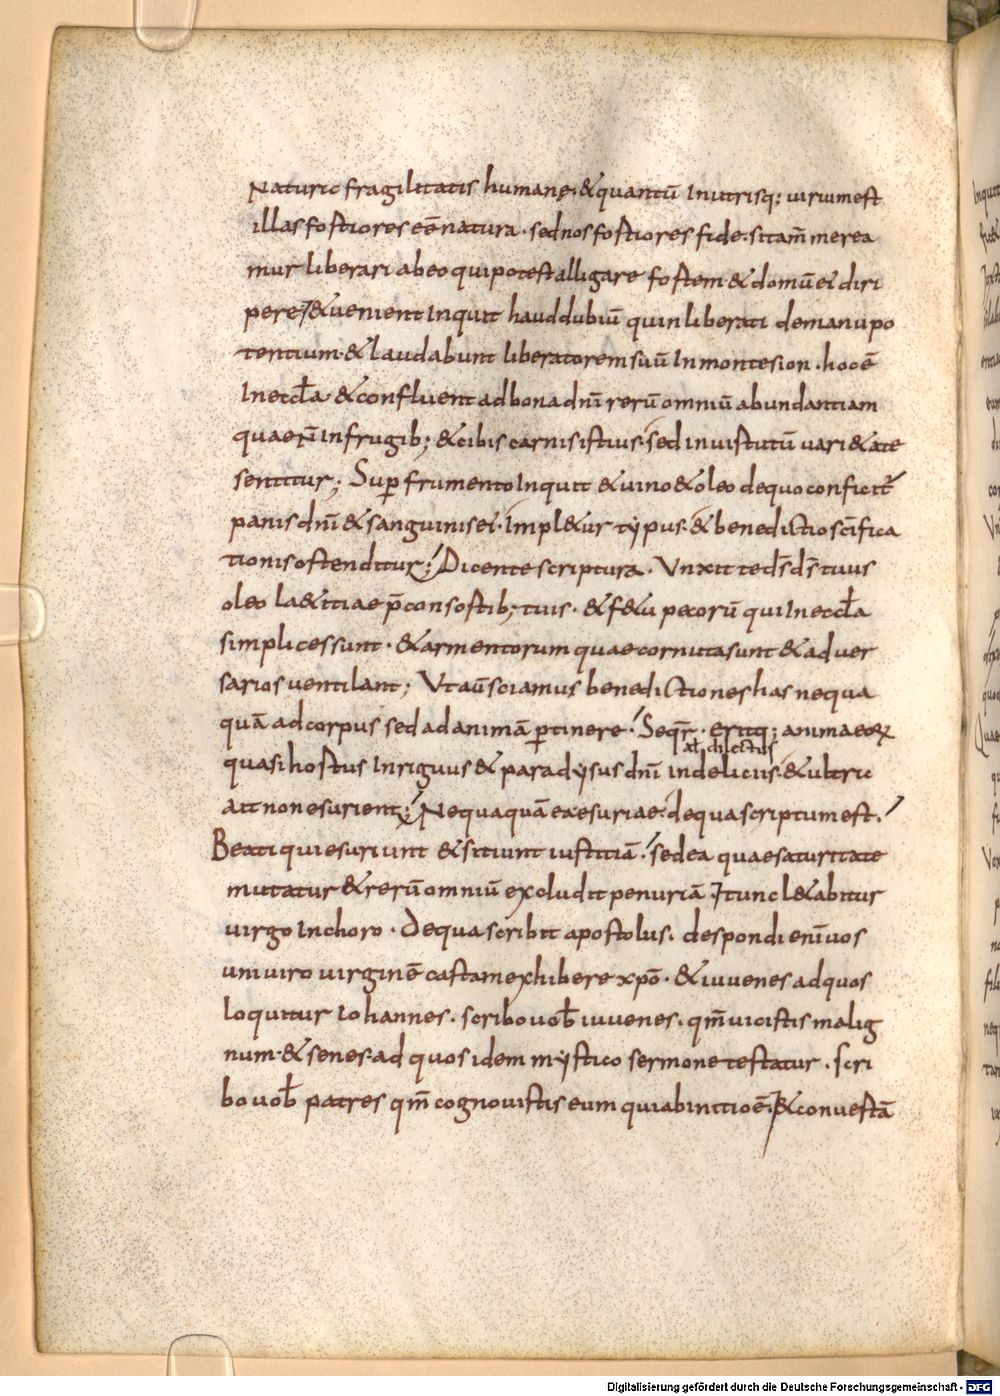 Naturȩ fragilitatis humanę· &quantū Inutrisq; uiriumest
illas fortiores eē natura· sed nos fortiores fide· si tam̄ merea
mur liberari abeo quipotest alligare fortem· & domū ei diri
pere· &uenient Inquit hauddubiū quin liberati demanu po
tentium· & laudabunt liberatorem suū In montesion· hoc ē
In eccła &confluent ad bona dn̄i rerū omniū abundantiam
quae n̄ Infrugib; & cibis carnis istius· sed inuirtutū uari&ate
sentitur; Sup frumento Inquit & uino & oleo dequo conficit̄
panis dn̄i & sanguinis ei· Impl&ur typus· & benedictio sc̄ifica
tionis ostenditur; Dicente scriptura· Vnxit te ds̄ ds̄ tuus
oleo la&itiae p̄ consortib; tuis· & f&u pecorū qui In eccła
simplices sunt· & armentorum quae cornuta sunt & aduer
sarios uentilant; Vt aū sciamus benedictiones has nequa
quā ad corpus sed ad animā ptinere· Seqr̄· eritq; anima eoꝝ
ał dilectus
quasi hortus Inriguus & paradysus dn̄i in deliciis· & ultra
ait non esurient; Nequaquā ea esuriae· de qua scriptum est·
Beati qui esuriunt & sitiunt iustitiā· sed ea quae saturitate
mutatur & rerū omniū excludit penuriā Itunc l&abitur
uirgo In choro· De qua scribit apostolus· despondi enī uos
uni uiro uirginē castam exhibere xp̄o· & iuuenes ad quos
loquitur Iohannes· scribo uob̄ iuuenes· qm̄ uicistis malig
num· & senes· ad quos idem mystico sermone testatur· scri
bo uob̄ patres qm̄ cognouistis eum qui abinitio ē· &conuertā
Digitalisierung gefördert durch die Deutsche Forschungsgemeinschaft - DFG